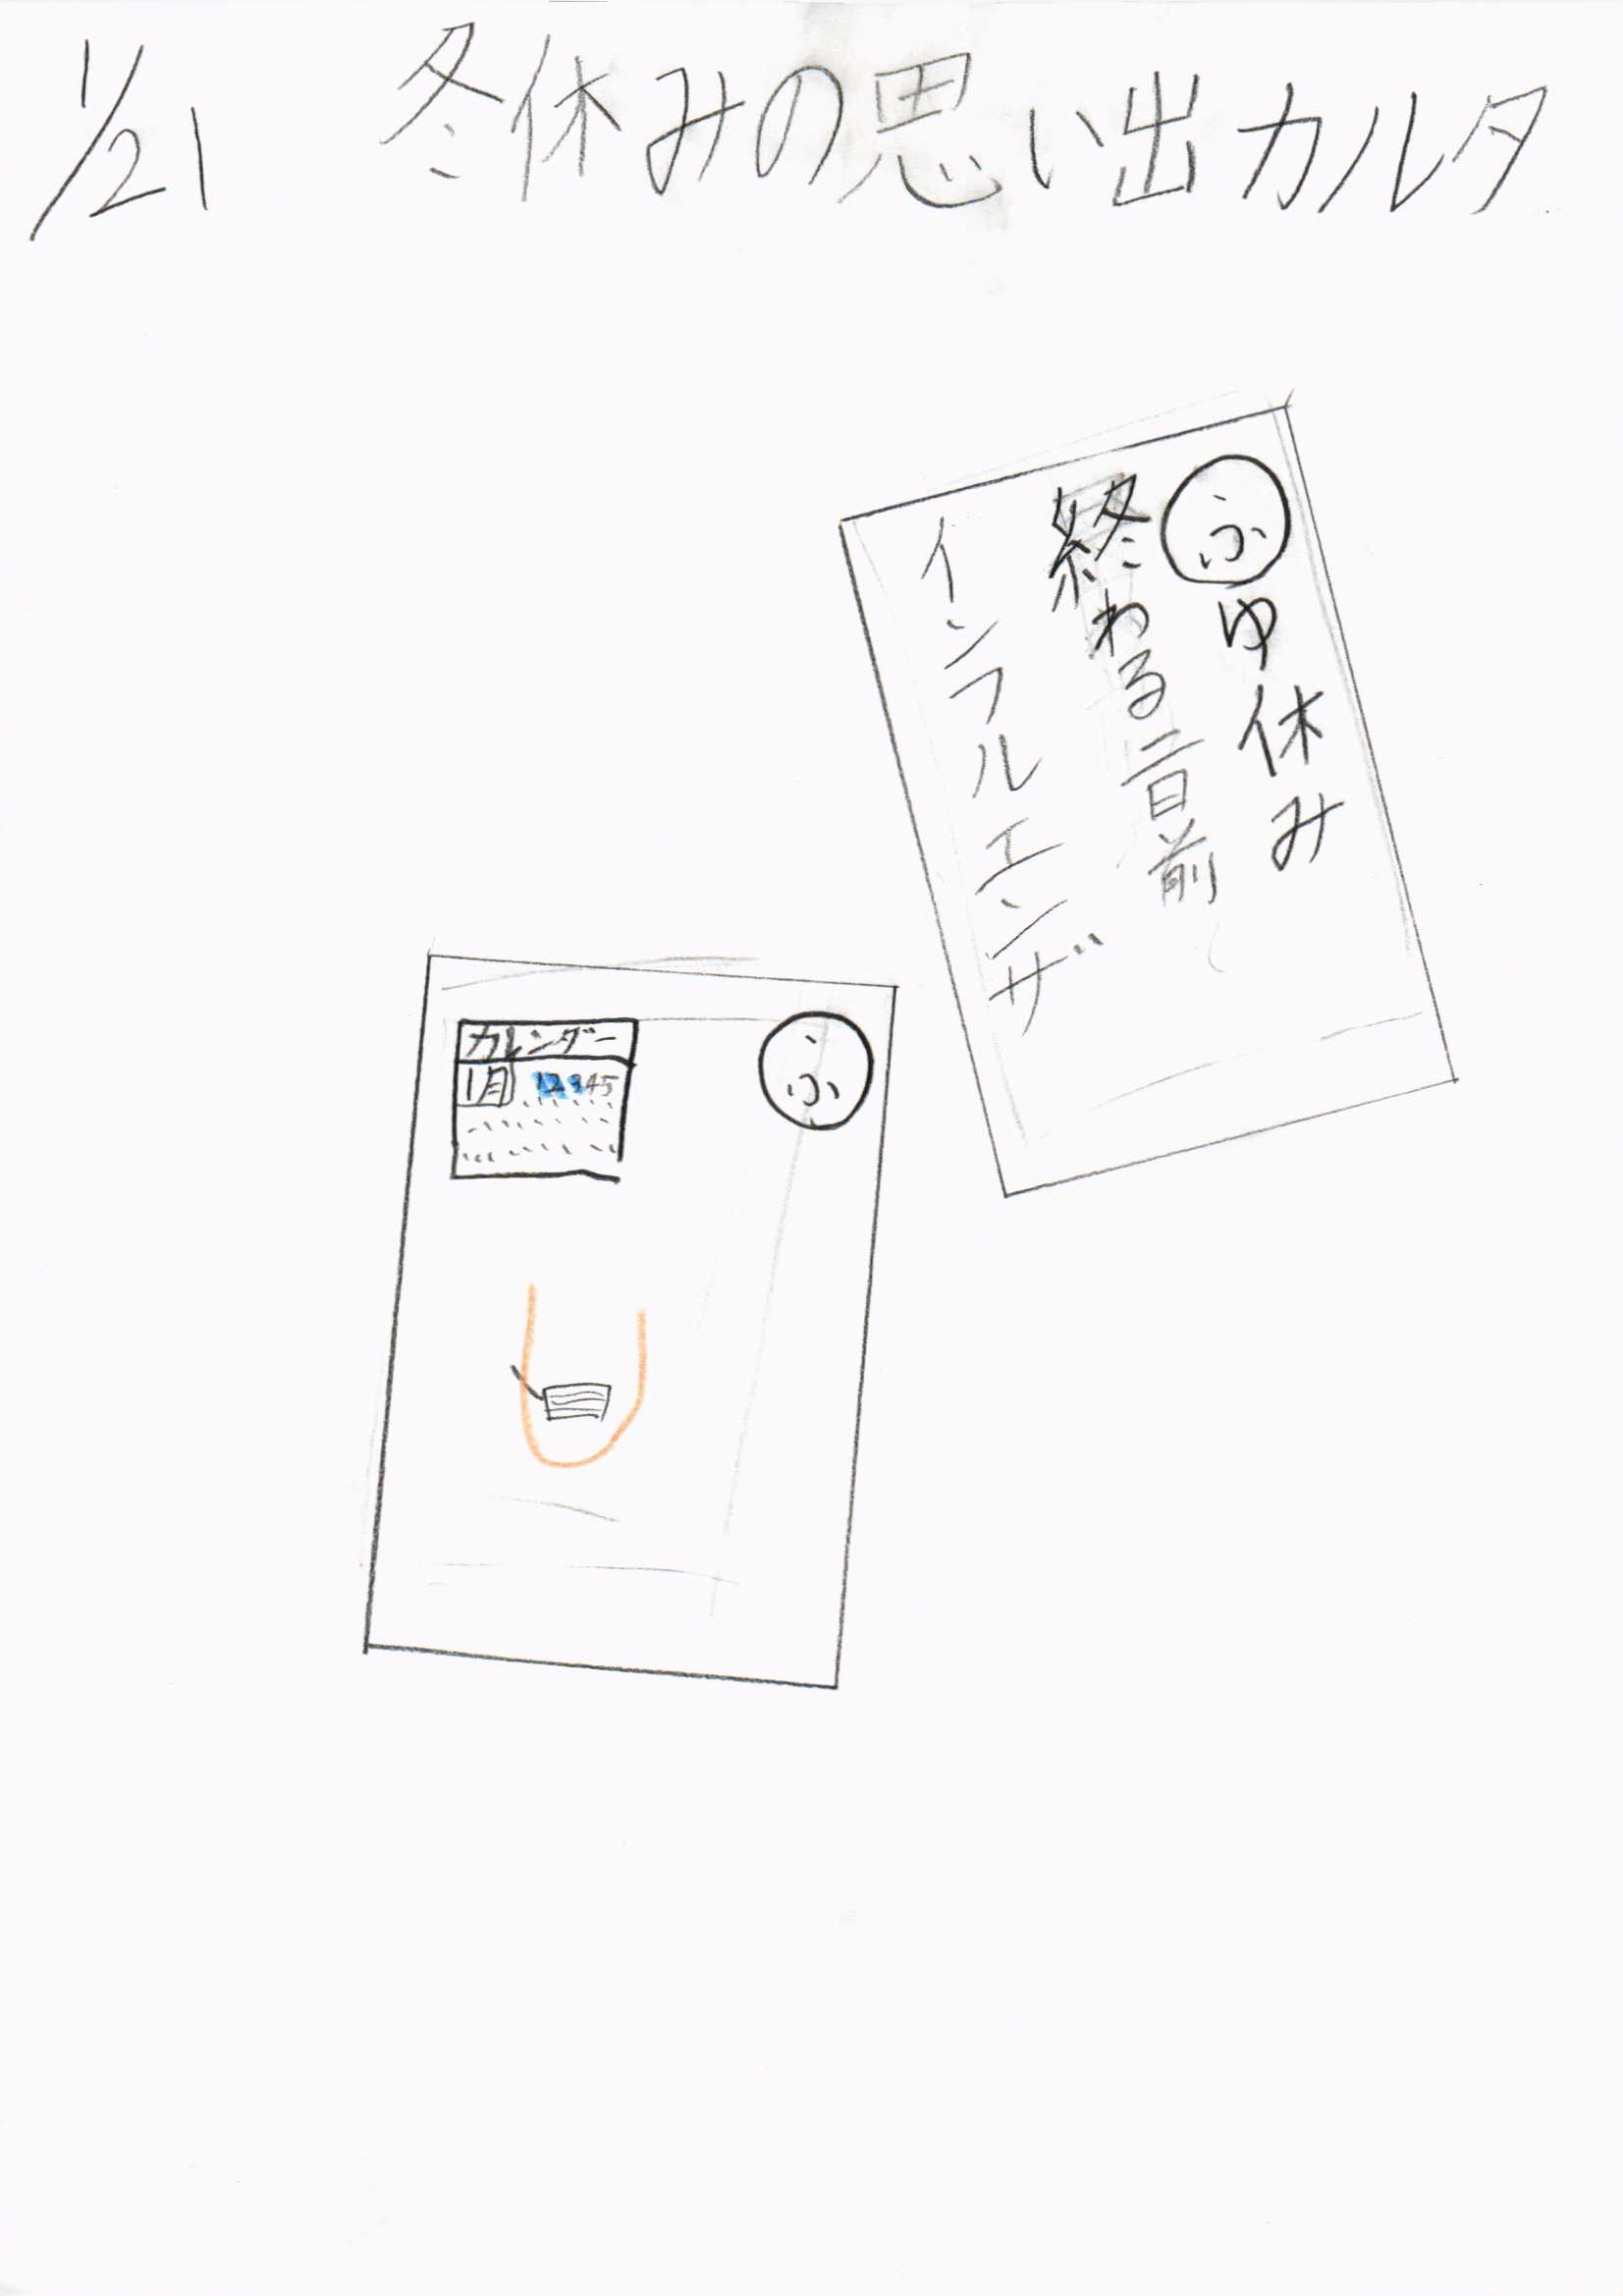 1/21
冬休みの思い出カルタ
ふゆ休み
終わる二日前
インフルエンザ
ふ
カレンダー
1月 12345